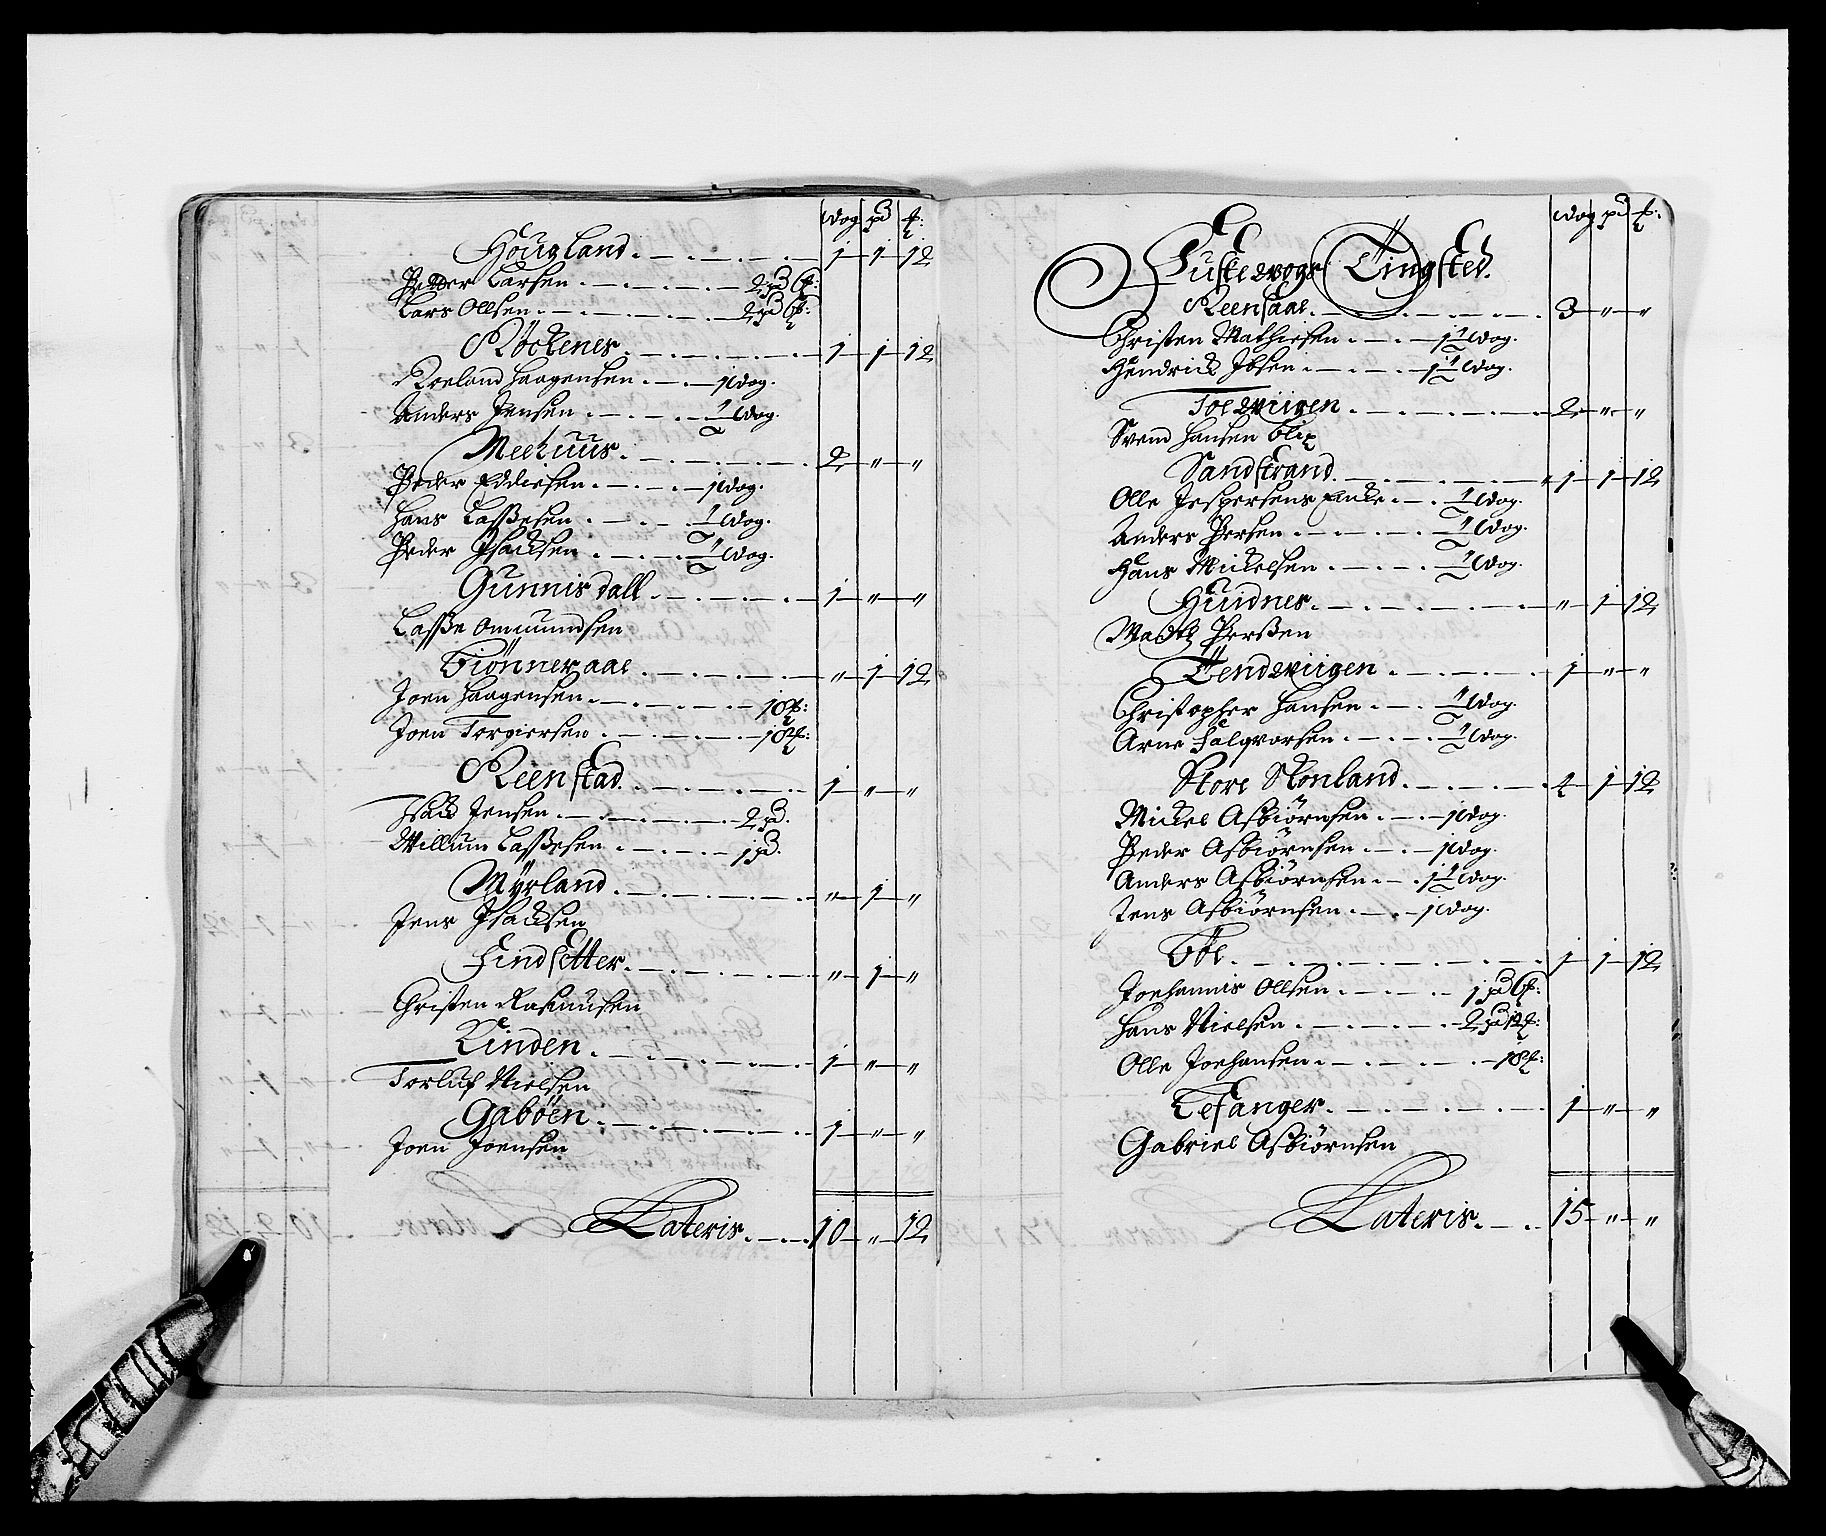 Wog pd ℔:
Hougland. 1 1 12
Peder Larsen 2 pd 6 ℔:
Lars Ollsen 2 pd 6 ℔:
Röchenes. 1 1 12
Roeland Haagensen 1 Wog.
Anders Jensen ½ Wog.
Meehuus. 2 " "
Peder Eddiesen 1 Wog.
Hans Lasßesen ½ Wog.
Peder Isacksen ½ Wog.
Gunnisdall 1 " "
Lasße Ommundsen
Fiönneraae " 1 12
Joen Haagensen 18 ℔:
Joen Torgiersen 18 ℔:
Reenstad. 1 " "
Isack Jensen 2 pd.
Willum Lasßesen 1 pd.
Myrland " 1 "
Jens Isacksen
Findsetter. " 1 "
Christen Rasmusen
Kinden. 1 " "
Torluf Nielsen
Gaböen 1 " "
Joen Joensen
Lateris. 10 " 12
Wog pd ℔:
Fuskevogs Tingsted.
Reensaae. 3 " "
Christen Mathiesen 1½ Wog.
Hendrick Ibsen 1½ Wog.
Toeviigen 2 " "
Svend Hansen Blix
Sandstrand. 1 1 12
Olle Jespersens Encke ½ Wog.
Anders Persen ½ Wog.
Hans Mickelsen ½ Wog.
Huidnes. " 1 12
Madtz Perßen
Tendviigen 1 " "
Christopher Hansen ½ Wog.
Arne Halqvorsen ½ Wog.
Store Skonland 4 1 12
Mickel Asbiørnsen 1 Wog.
Peder Asbiørnsen 1 Wog.
Anders Asbiørnsen 1½ Wog.
Jens Asbiørnsen 1 Wog.
Böe 1 1 12
Joehannis Ollsen 1 pd 6 ℔:
Hans Nielsen 2 pd 12 ℔:
Olle Joehansen 18 ℔:
Lefanger. 1 " "
Gabriel Asbiørnsen
Lateris. 15 " "